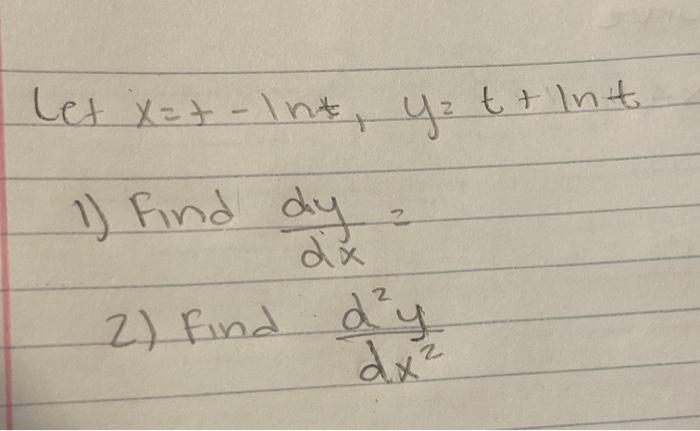 Let x=t-lnt, y=t+lnt
1) Find dy/dx =
2) Find d²y/dx²